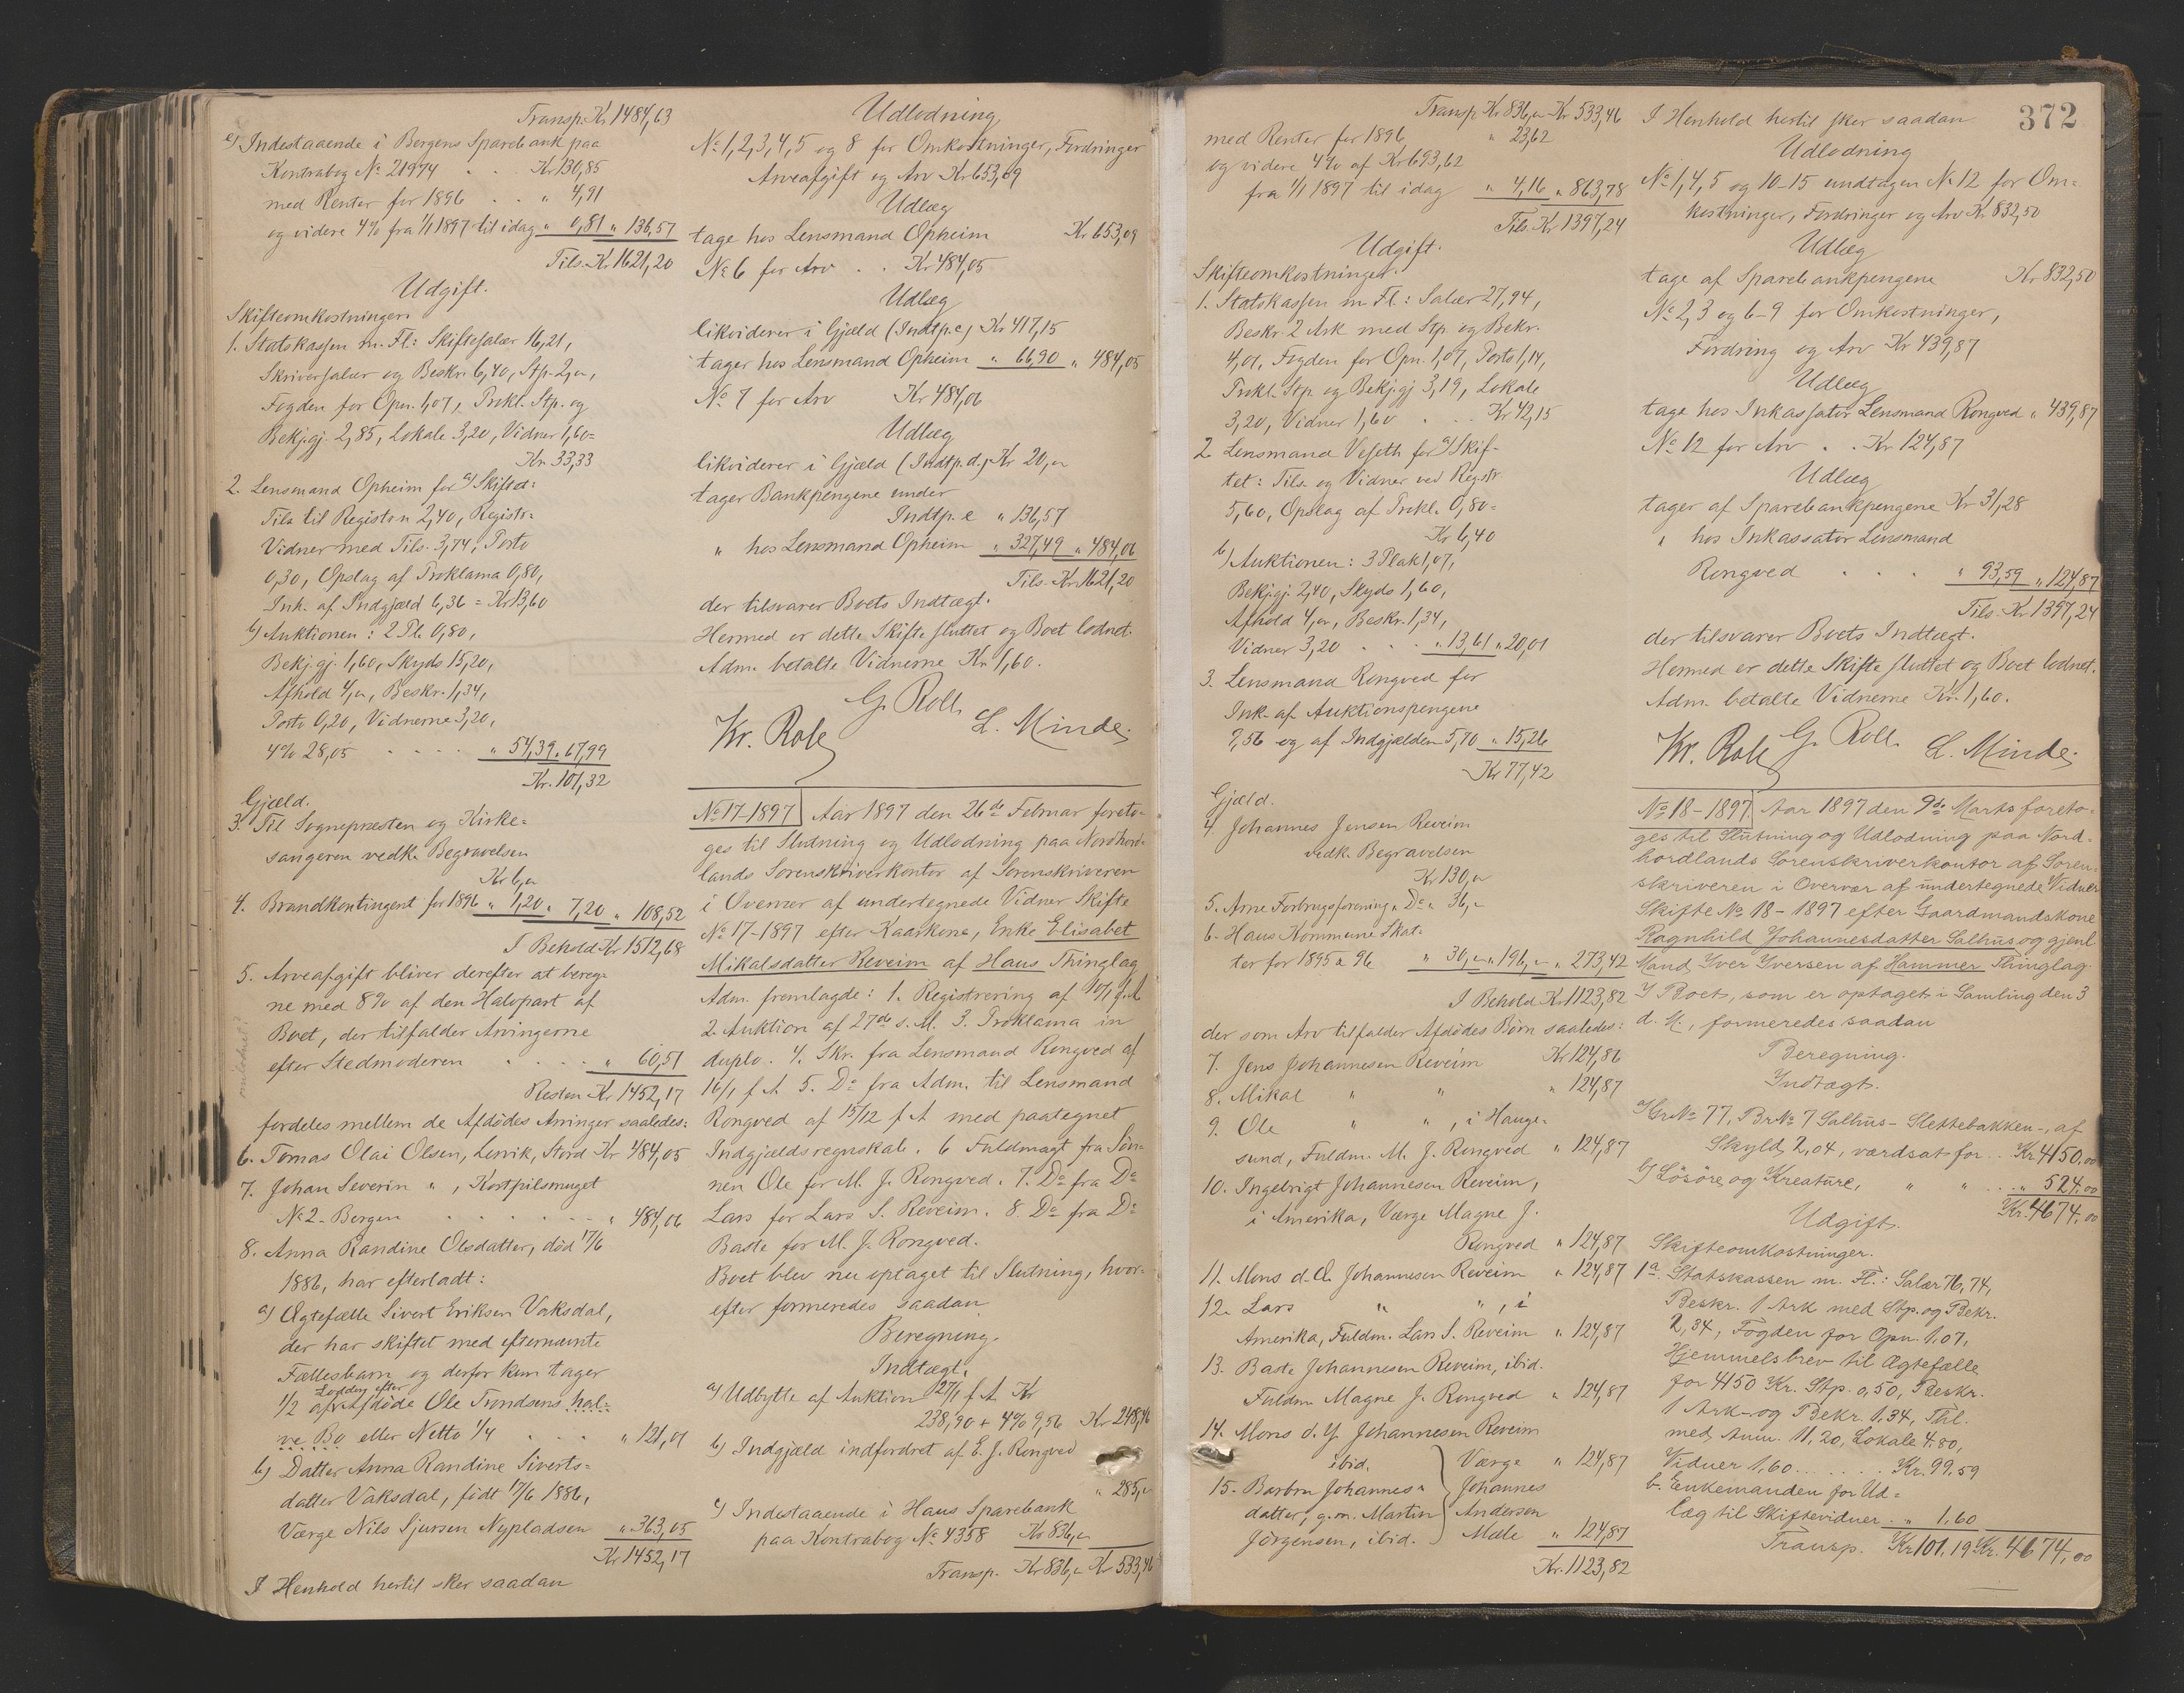 Transp. Kr 1484,63
e) Indestaaende i Bergens Sparebank paa
Kontrabog No 21974 . . Kr 130,85
med Renter for 1896 . . " 4,91
og videre 4% fra 1/1 1897 til idag " 0,81 " 136,57
Tils. Kr 1621,20
Udgift.
Skifteomkostninger.
1. Statskassen m. Fl.: Skiftesalær 16,21,
Skriversalær og Beskr. 6,40, Stp. 2,„,
Fogden for Opn. 1,07, Prokl. Stp. og
Bekj.gj. 2,85, Lokale 3,20, Vidner 1,60=
Kr. 33,33
2. Lensmand Opheim for a) Skiftet:
Tils. til Registr. 2,40, Registr.
Vidner med Tils. 3,74, Porto
0,30, Opslag af Proklama 0,80,
Ink. af Indgjæld 6,36 = Kr 13,60
b) Auktionen: 2 Pl. 0,80,
Bekj.gj. 1,60, Skyds 15,20,
Afhold 4,„, Beskr. 1,34,
Porto 0,20, Vidnerne 3,20,
4% 28,05 . . . . " 54,39 " 67,99
Kr. 101,32
Gjæld.
3. Til Sognepresten og Kirke-
sangeren vedk. Begravelsen
Kr 6,„
4. Brandkontingent for 1896 " 1,20 " 7,20 " 108,52
I Behold Kr 1512,68
5. Arveafgift bliver derefter at bereg-
ne med 8% af den Halvpart af
Boet, der tilfalder Arvingerne
efter Stedmoderen . . . . " 60,51
Resten Kr 1452,17
fordeles mellem de Afdødes Arvinger saaledes:
6. Tomas Olai Olsen, Lervik, Stord Kr 484,05
7. Johan Severin " , Kortpilsmuget
No 2 - Bergen . . . . . " 484,06
8. Anna Randine Olsdatter, død 17/6
1886, har efterladt:
a) Ægtefælle Sivert Eriksen Vaksdal,
der har skiftet med efternævnte
Fællesbarn og derfor kun tager
1/2 af Lodden efter Afdøde Ole Trondsens hal-
ve Bo eller Netto 1/4 . . . " 121,01
b) Datter Anna Randine Siverts-
datter Vaksdal, født 17/6 1886,
Værge Nils Sjursen Nypladsen " 363,05
Kr 1452,17
I Henhold hertil sker saadan
Udlodning
No 1, 2, 3, 4, 5 og 8 for Omkostninger, Fordringer
Arveafgift og Arv Kr 653,09
Udlæg
tage hos Lensmand Opheim Kr 653,09
No 6 for Arv . . Kr 484,05
Udlæg
likviderer i Gjæld (Indtp. c) Kr 417,15
tager hos Lensmand Opheim " 66,90 " 484,05
No 7 for Arv Kr 484,06
Udlæg
likviderer i Gjæld (Indtp. d.) Kr 20,„
tager Bankpengene under
Indtp. e " 136,57
" hos Lensmand Opheim " 327,49 " 484,06
Tils. Kr 1621,20
der tilsvarer Boets Indtægt.
Hermed er dette Skifte sluttet og Boet lodnet.
Adm. betalte Vidnerne Kr. 1,60.
G. Roll.
Kr. Role L. Minde.
No 17-1897 Aar 1897 den 26de Februar foreto-
ges til Slutning og Udlodning paa Nordhord-
lands Sorenskriverkontor af Sorenskriveren
i Overvær af undertegnede Vidner Skifte
No 17-1897 efter Kaarkone, Enke Elisabet
Mikalsdatter Reveim af Haus Thinglag
Adm. fremlagde: 1. Registrering af 10/1 f. A
2. Auktion af 27de s. M. 3. Proklama in
duplo. 4. Skr. fra Lensmand Rongved af
16/1 f A 5. Do fra Adm. til Lensmand
Rongved af 15/12 f A med paategnet
Indgjældsregnskab. 6 Fuldmagt fra Søn-
nen Ole for M. J. Rongved. 7. Do fra Do
Lars for Lars S. Reveim. 8. Do fra Do
Baste for M. J. Rongved.
Boet blev nu optaget til Slutning, hvor-
efter formeredes saadan
Beregning.
Indtægt.
a) Udbytte af Auktion 27/1 f. A. Kr
238,90 + 4% 9,56 Kr 248,46
b) Indgjæld indfordret af E. J. Rongved
" 285,„
c) Indestaaende i Haus Sparebank
paa Kontrabog No 4358 Kr 836,„
Transp. Kr 836,„ Kr 533,46
372
Transp. Kr 836,„ Kr 533,46
med Renter for 1896 " 23,62
og videre 4% af Kr 693,62
fra 1/1 1897 til idag " 4,16 " 863,78
Tils. Kr 1397,24
Udgift.
Skifteomkostninger.
1. Statskassen m Fl.: Salær 27,94,
Beskr. 2 Ark med Stp. og Bekr.
4,01, Fogden for Opn. 1,07, Porto 1,14,
Prokl. Stp. og Bekj.gj 3,19, Lokale
3,20, Vidner 1,60 . . Kr 42,15
2. Lensmand Veseth for a) Skif-
tet: Tils. og Vidner ved Registr
5,60, Opslag af Prokl. 0,80=
Kr 6,40
b) Auktionen: 3 Plak 1,07,
Bekj.gj. 2,40, Skyds 1,60,
Afhold 4,„, Beskr. 1,34,
Vidner 3,20 . . . " 13,61 " 20,01
3. Lensmand Rongved for
Ink. af Auktionspengene
9,56 og af Indgjælden 5,70 " 15,26
Kr 77,42
Gjæld.
4 Johannes Jensen Reveim
vedk. Begravelsen
Kr 130,„
5. Arne Forbrugsforening " Do " 36,„
6. Haus Kommune Skat-
ter for 1895 & 96 " 30,„ " 196,„ " 273,42
I Behold Kr 1123,82
der som Arv tilfalder Afdødes Børn saaledes:
7. Jens Johannesen Reveim Kr 124,86
8. Mikal " " " 124,87
9. Ole " " , i Hauge-
sund, Fuldm. M. J. Rongved " 124,87
10. Ingebrigt Johannesen Reveim,
i Amerika, Værge Magne J.
Rongved " 124,87
11. Mons d. Æ. Johannesen Reveim " 124,87
12. Lars " " , i
Amerika, Fuldm. Lars S. Reveim " 124,87
13. Baste Johannesen Reveim, ibid.
Fuldm. Magne J. Rongved " 124,87
14. Mons d. Y. Johannesen Reveim
ibid. Værge " 124,87
15. Barbra Johannes- Johannes
datter, g.m. Martin Andersen
Jörgensen, ibid. Mæle " 124,87
Kr. 1123,82
I Henhold hertil sker saadan
Udlodning
No 1, 4, 5 og 10-15 undtagen No 12 for Om-
kostninger, Fordringer og Arv Kr. 832,50
Udlæg
tage af Sparebankpengene Kr 832,50
No 2, 3 og 6-9 for Omkostninger,
Fordring og Arv Kr 439,87
Udlæg
tage hos Inkassator Lensmand Rongved " 439,87
No 12 for Arv . . Kr 124,87
Udlæg
tager af Sparebankpengene Kr 31,28
" hos Inkassator Lensmand
Rongved . . . " 93,59 " 124,87
Tils. Kr 1397,24
der tilsvarer Boets Indtægt.
Hermed er dette Skifte sluttet og Boet lodnet.
Adm. betalte Vidnerne Kr. 1,60.
Kr. Role G. Roll. L. Minde.
No 18-1897. Aar 1897 den 9de Marts foreto-
ges til Slutning og Udlodning paa Nord-
hordlands Sorenskriverkontor af Soren-
skriveren i Overvær af undertegnede Vidner
Skifte No 18-1897 efter Gaardmandskone
Ragnhild Johannesdatter Salhus og gjenl.
Mand Iver Iversen af Hammer Thinglag.
I Boet, som er optaget i Samling den 3
d. M., formeredes saadan
Beregning.
Indtægt.
a) Gr No 77, Br No 7 Salhus - Slettebakken -, af
Skyld 2,04, værdsat for . . Kr. 4150,00
b) Lösöre og Kreature, " " . . . " 524,00
Kr. 4674,00
Udgift.
Skifteomkostninger.
1a. Statskassen m. Fl.: Salær 76,74,
Beskr. 1 Ark med Stp. og Bekr.
2,34, Fogden for Opn. 1,07,
Hjemmelsbrev til Ægtefælle
for 4150 Kr. Stp. 0,50, Beskr.
1 Ark og Bekr. 1,34, Thl.
med Anm. 11,20, Lokale 4,80,
Vidner 1,60 . . . . . Kr. 99,59
b. Enkemanden for Ud-
læg til Skiftevidner . . " 1,60
Transp. Kr 101,19 Kr. 4674,00